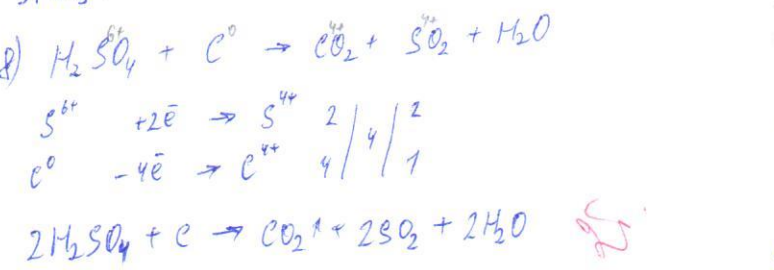 8) H₂S⁶⁺O₄ + C⁰ → C⁴⁺O₂ + S⁴⁺O₂ + H₂O
S⁶⁺ +2ē → S⁴⁺ 2 | 4 | 2
C⁰ -4ē → C⁴⁺ 4 | | 1
2H₂SO₄ + C → CO₂↑ + 2SO₂ + 2H₂O